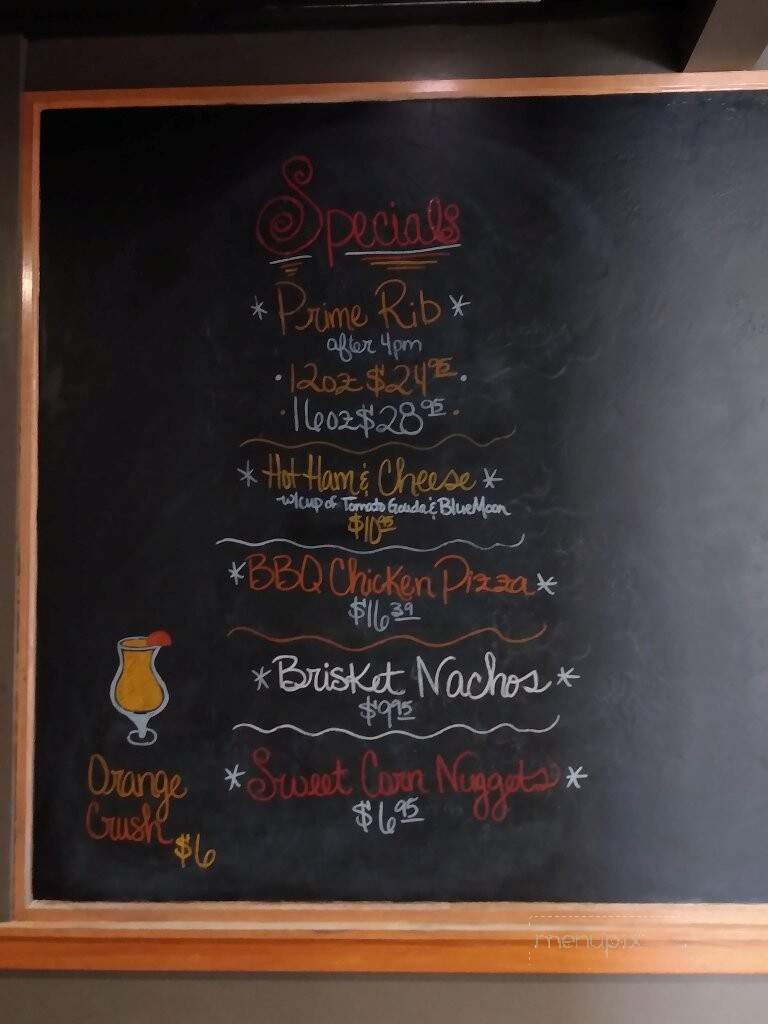 Specials
* Prime Rib *
after 4pm
· 12oz $24.95 ·
· 16oz $28.95 ·
* Hot Ham & Cheese *
w/cup of Tomato Gouda & Blue Moon
$10.95
* BBQ Chicken Pizza *
$16.39
* Brisket Nachos *
$9.95
* Sweet Corn Nuggets *
$6.95
Orange
Crush
$6
menupix